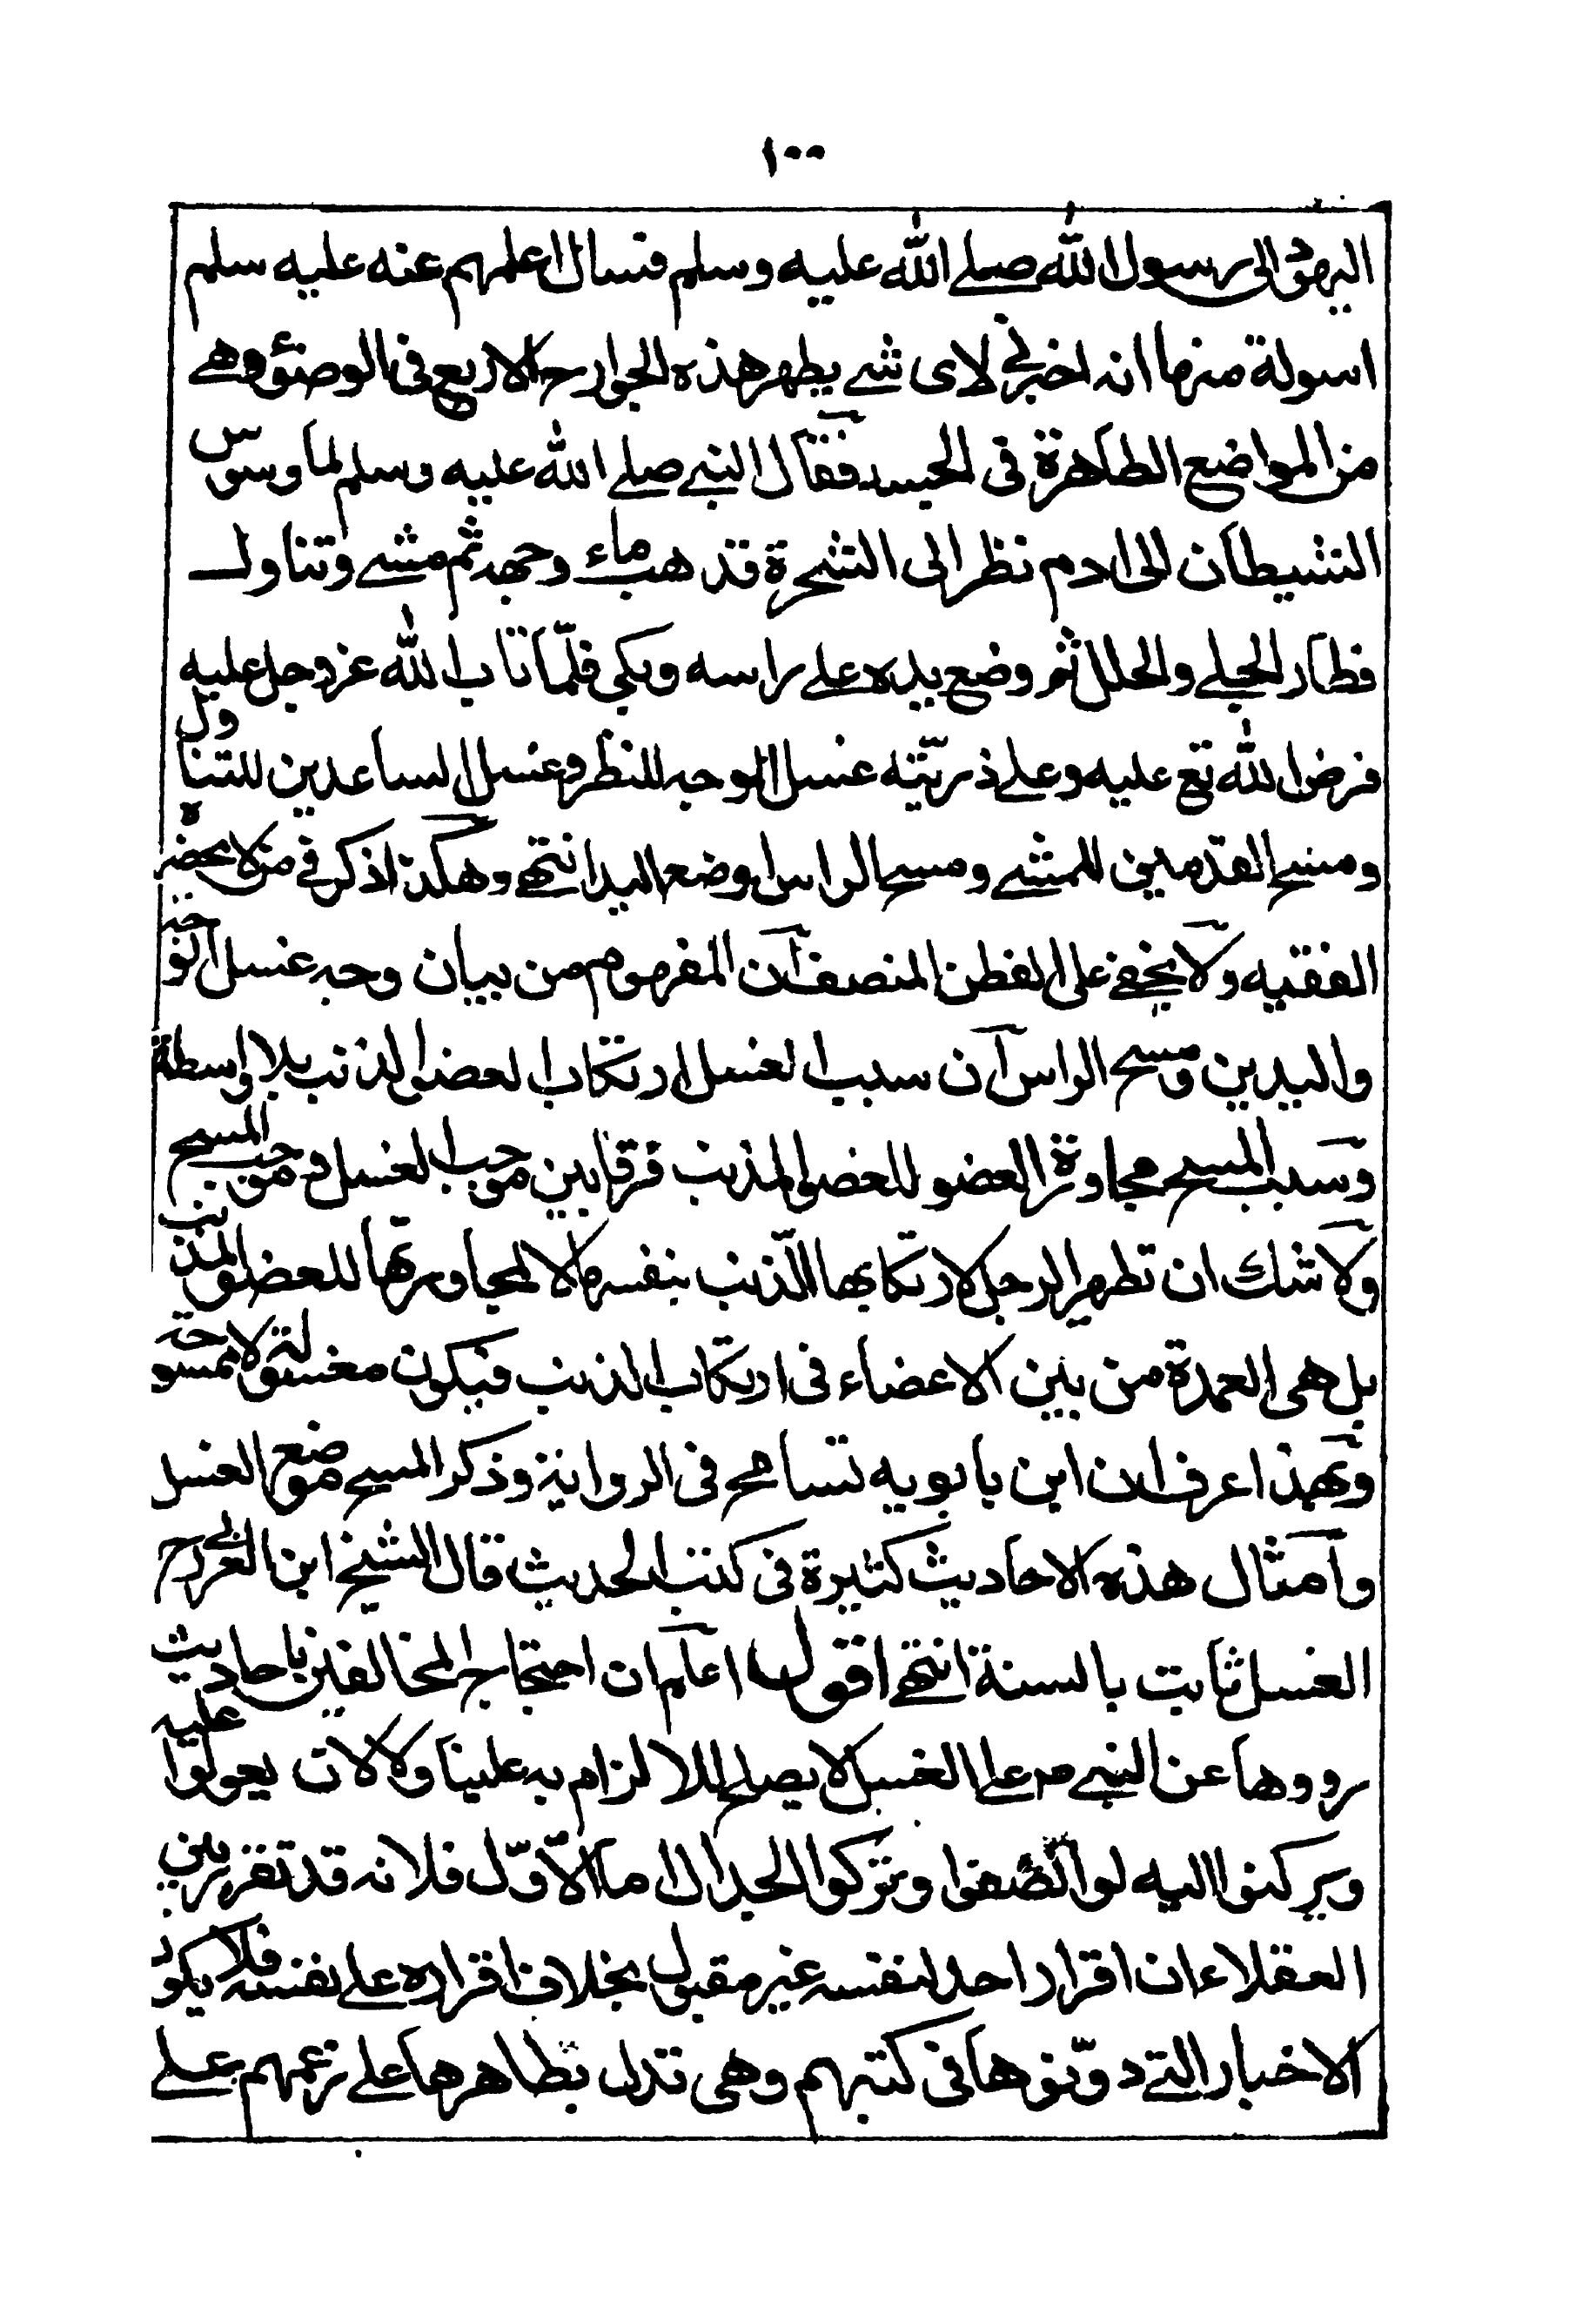 ١٠٠
اليهود الى رسول الله صلے الله عليه وسلم فسال اعلمهم عنه عليه سلم
اسولة منها انه اخبرنى لاى شے يطهر هذه الجوارح الاربع فى الوضوء وهے
من المواضع الطاهرة فى الجسد فقال النبے صلے الله عليه وسلم لما وسوس
الشيطان الى ادم نظر الى الشجرة فذهب ماء وجهه ثم مشے وتناول
فطار الحلے والحلل ثم وضع يده علے راسه وبكى فلمّا تاب الله عزوجل عليه
فرض الله تع عليه وعلے ذرّيّته غسل الوجه للنظر وغسل الساعدين للتناول
ومسح القدمين للمشے ومسح الراس لوضع اليد انتهے وهكذا ذكر فے من لا يحضره
الفقيه ولا يخفے على الفطن المنصف ان المفهوم من بيان وجه غسل الوجه
واليدين ومسح الراس ان سبب الغسل ارتكاب العضو الذنب بلا واسطة
وسبب المسح مجاورة العضو للعضو المذنب فرقا بين موجب الغسل وموجب المسح
ولا شك ان تطهير الرجل لارتكابها الذنب بنفسها لا لمجاورتها للعضو المذنب
بل هى العمدة من بين الاعضاء فى ارتكاب الذنب فيكون مغسولة لا ممسوحة
وبهذا عرف ان ابن بابويه تسامح فى الرواية وذكر المسح موضع الغسل
وامثال هذه الاحاديث كثيرة فى كتب الحديث قال الشيخ ابن العربے رح
الغسل ثابت بالسنة انتهے اقول اعلم ان احتجاج المخالفين باحاديث
رووها عن النبے ص على الغسل لا يصلح للالزام به علينا ولا لان يعولوا عليه
ويركنوا اليه لو انصفوا وتركوا الجدال اما الاوّل فلانه قد تقرر بين
العقلاء ان اقرار احد لنفسه غير مقبول بخلاف اقراره على نفسه فلا يكون
الاخبار التے دوّنوها فى كتبهم وهى تدل بظاهرها علے زعمهم علے